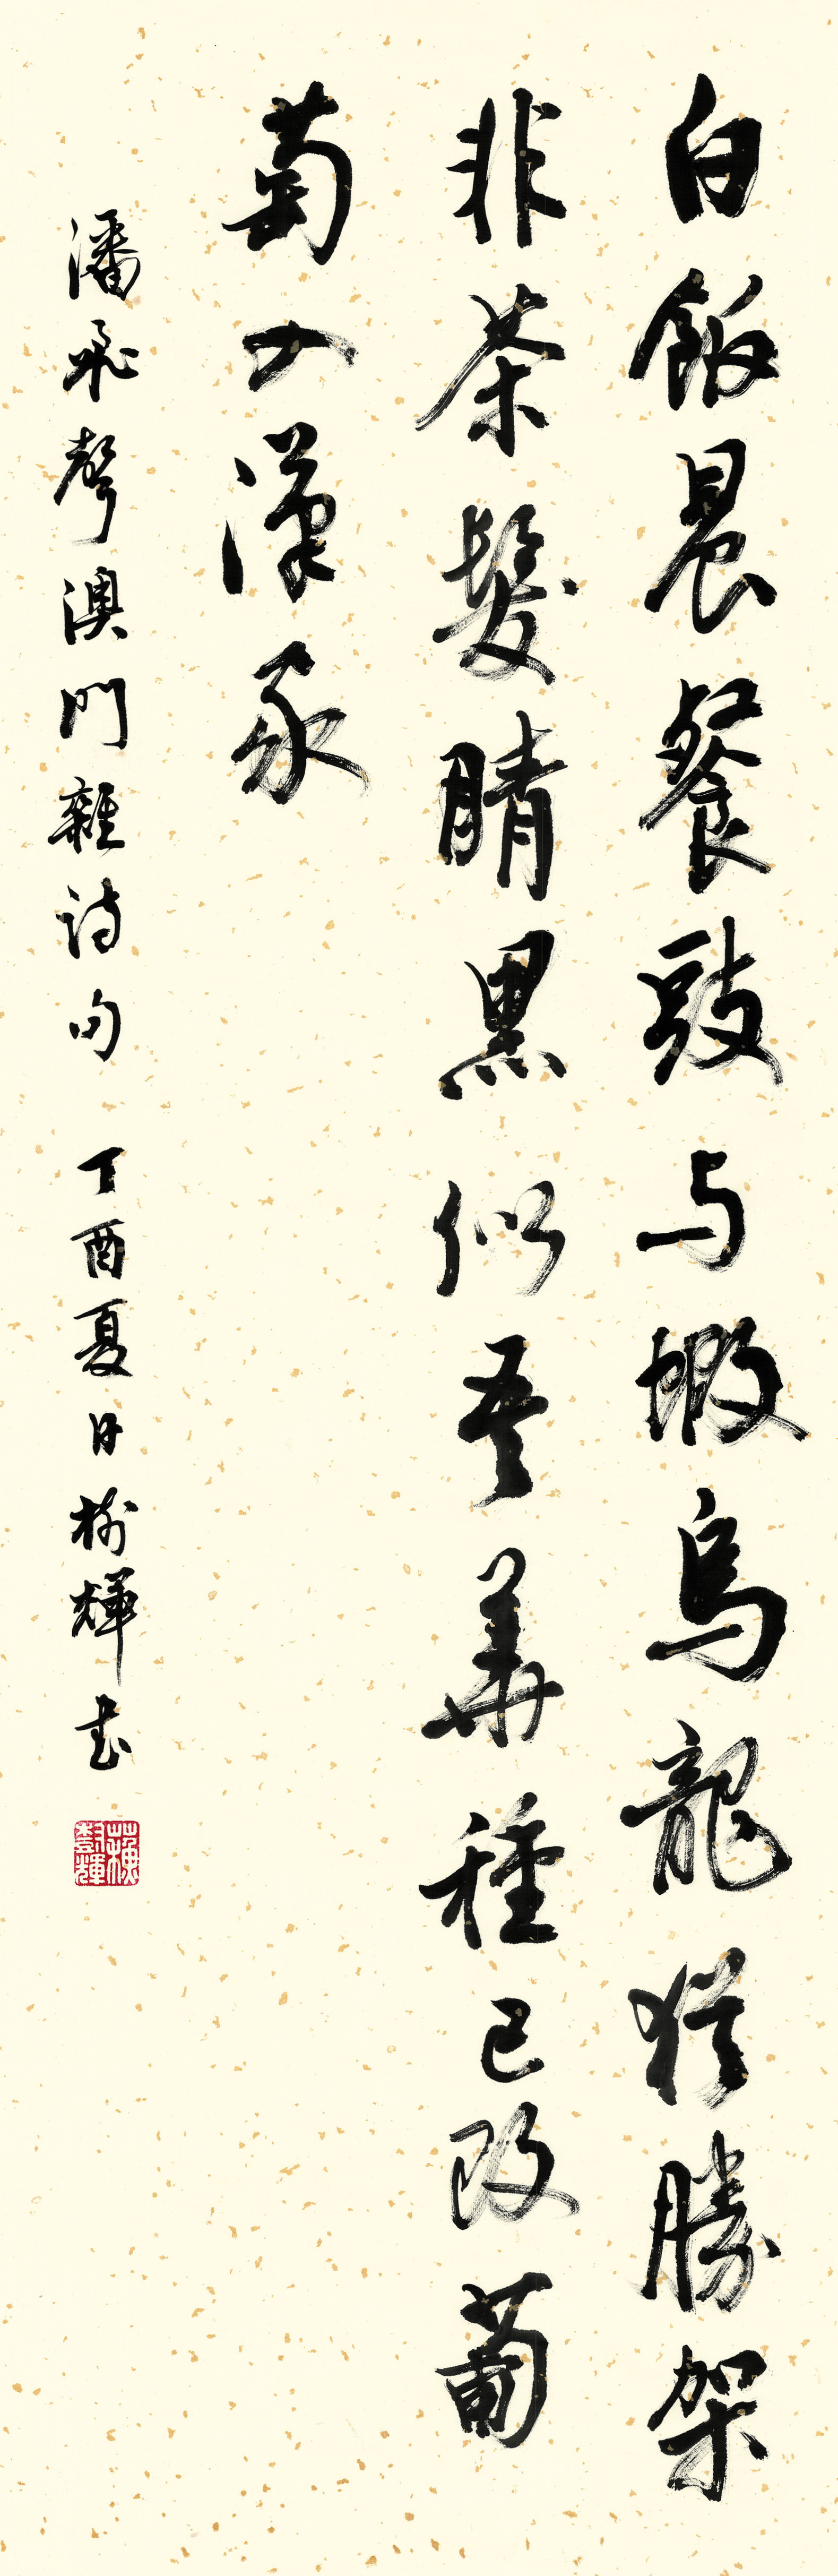 白飯晨餐豉与蝦烏龍猶勝架
非茶髮睛黑似吾華種已改葡
萄入漢家
潘飛聲澳門雜诗句 丁酉夏日樹輝书
蘇樹輝